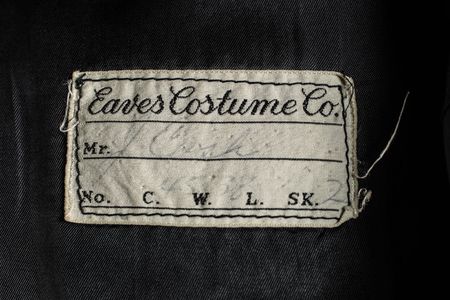 Eaves Costume Co.
Mr. J
No. C. W. L. SK. 2